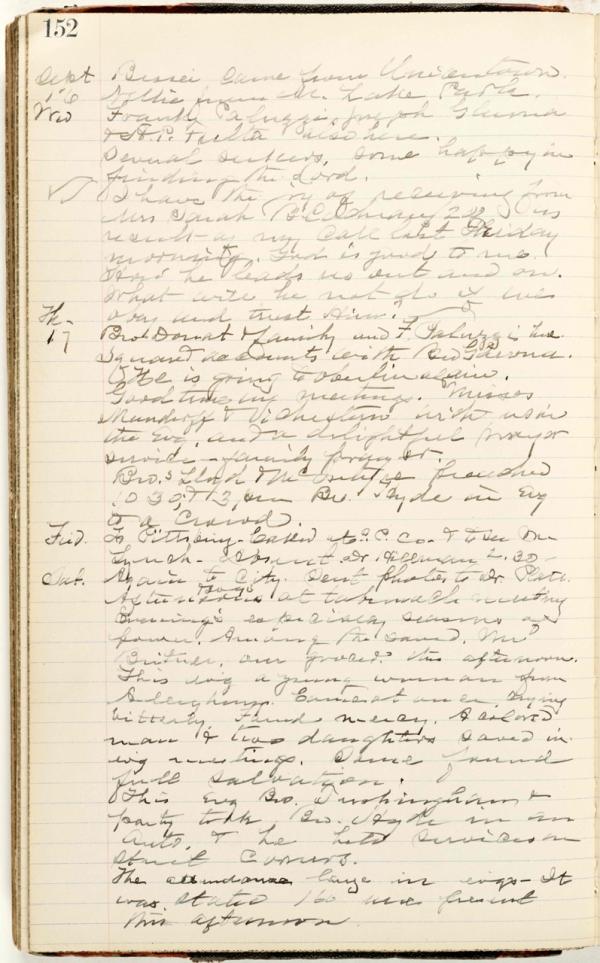 152
Sept Bessie came from Uniontown.
16 Lake Park.
Wed Frank Paluzzi, Joseph
& A. P. here.
Several seekers, some happy in
finding the Lord.
I have the joy of receiving from
Mrs Sarah as
result of my call last Friday
morning. God is good to me.
How he leads us out and on.
What will he not do if we
obey and trust Him.
Th- Bro Donat & family and F. Paluzzi here.
17 Squared accounts with Bro
He is going to Oberlin again.
Good time in meetings. Misses
& with us in
the Evg, and a delightful prayer
service - family prayer.
Bro.s Lloyd & preached
10 30, & 3, pm Bro. Hyde in Evg
to a crowd.
Frid. To Pittsburg - Called at P. Co. & to see Mr
Lynch - Dr. Hillman 2.30 -
Sat. Again to City. Sent photos to Dr. Platt.
Afternoons at tabernacle meeting
Evenings especially seasons of
power. Among the saved, Mr
our grocer this afternoon.
This evg a young woman from
Allegheny. Came at once, crying
bitterly. Found mercy. A colored
man & two daughters saved in
evg meetings. Some found
full salvation.
This Evg Bro. &
party took Bro. Hyde in an
Auto, & he held services on
street corners.
The attendance large in evgs - It
was stated 160 were present
this afternoon